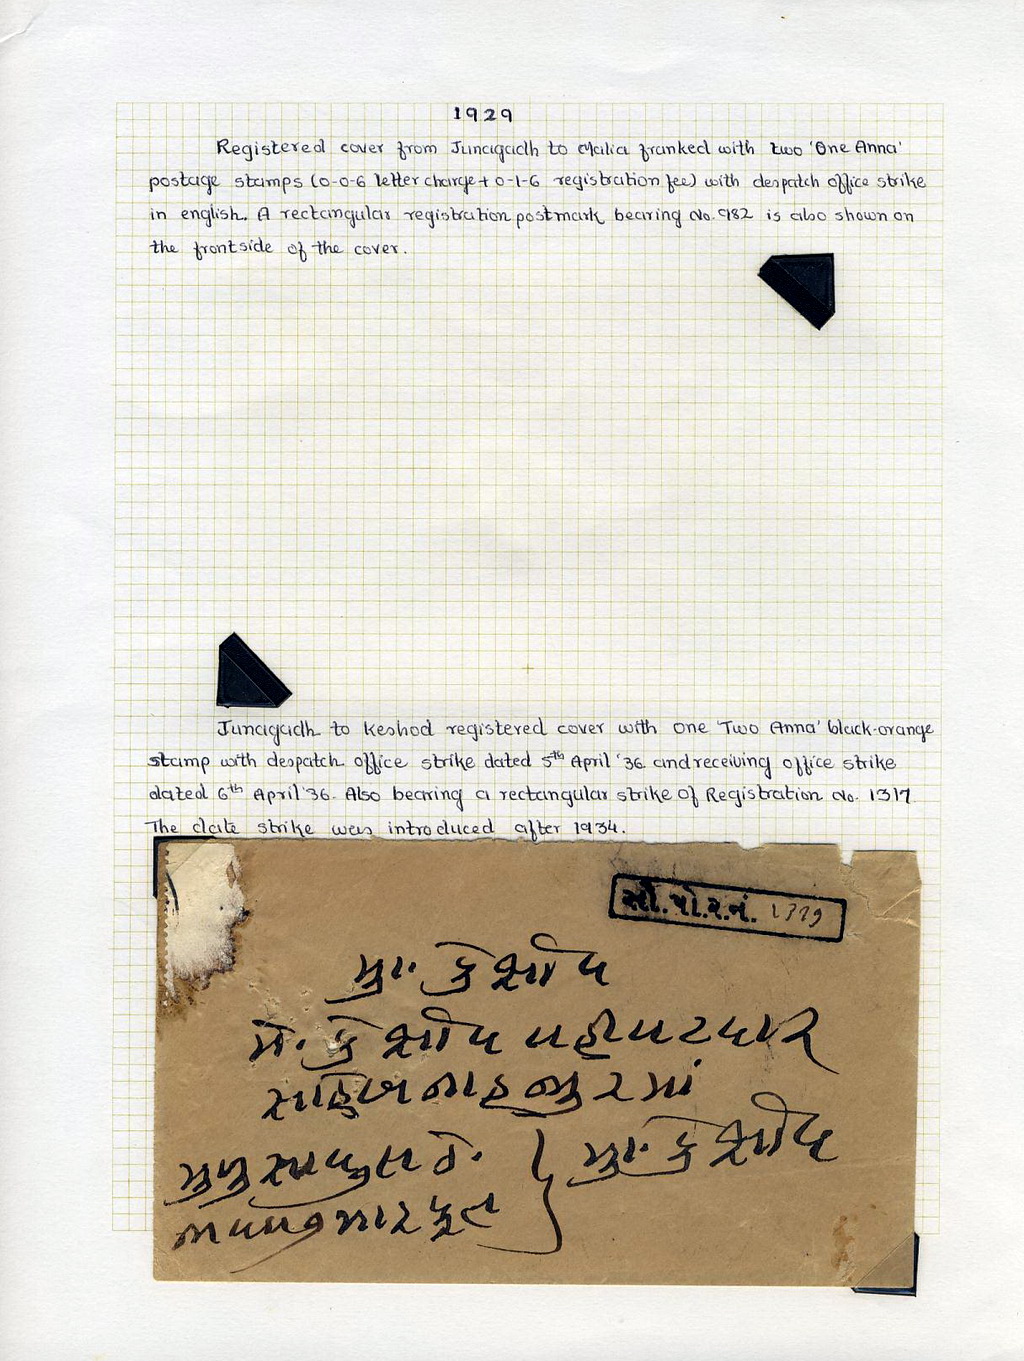 1929
Registered cover from Junagadh to Malia franked with two 'One Anna'
postage stamps (0-0-6 letter charge + 0-1-6 registration fee) with despatch office strike
in english. A rectangular registration postmark bearing No. 982 is also shown on
the frontside of the cover.
Junagadh to Keshod registered cover with one 'Two Anna' black-orange
stamp with despatch office strike dated 5th April '36 and receiving office strike
dated 6th April '36. Also bearing a rectangular strike of Registration No. 1317
The date strike was introduced after 1934.
સૌ.પો.ર.નં.
મુ. કેશોદ
મે. કેશોદ વહીવટદાર
સાહેબ
મુ. કેશોદ